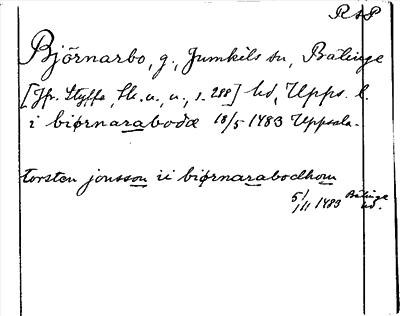 RAP
Björnarbo, g., Jumkils sn, Bälinge
[Jfr. Styffe, Sk. u. u., s. 288] hd, Upps. l.
i biørnarabodæ 18/5 1483 Uppsala.
torsten jonsson ii biørnarabodhom
5/11 1483 Bälinge
hd.